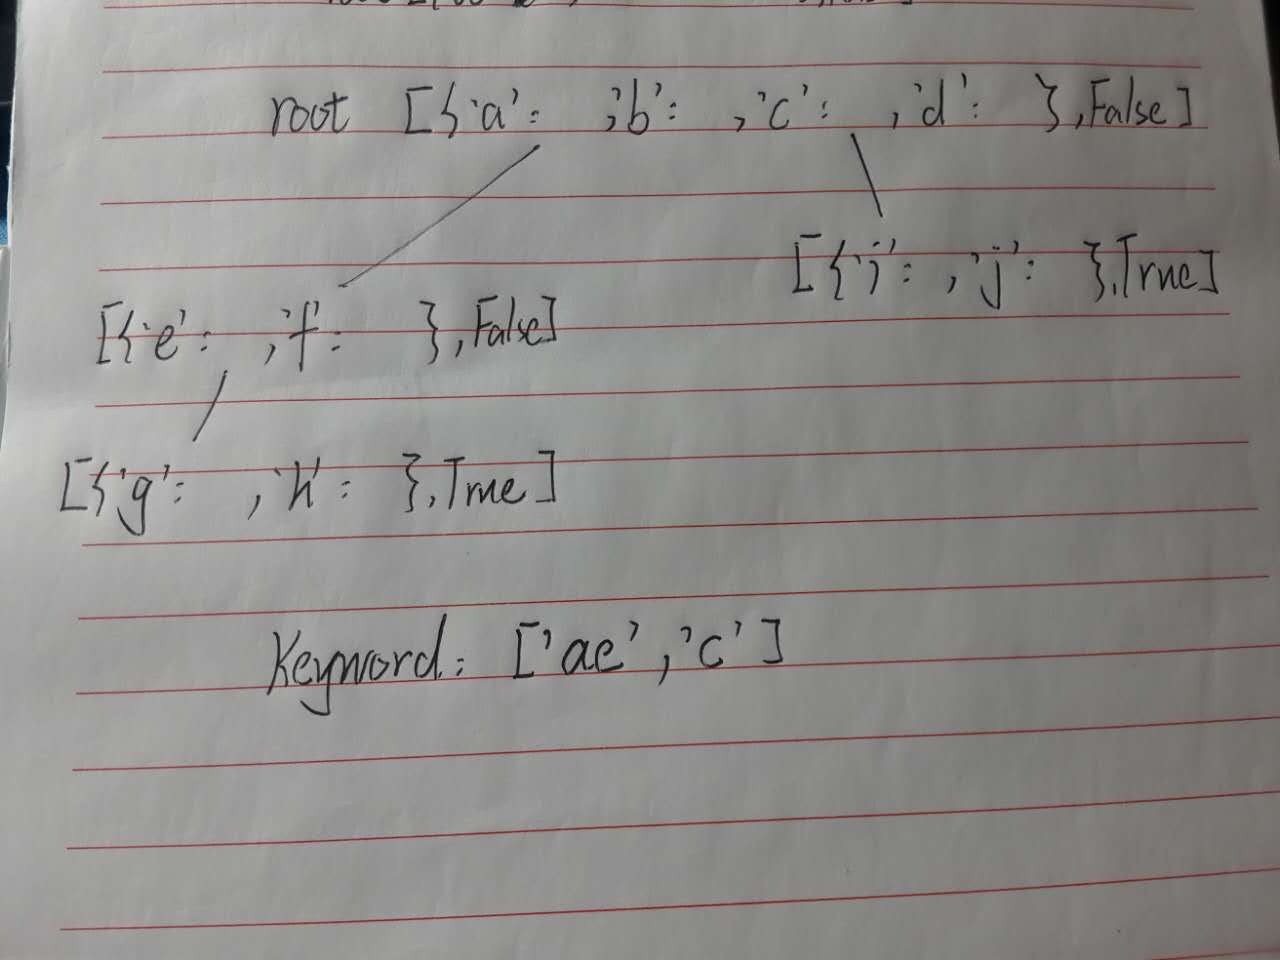 root [{'a': ,'b': ,'c': ,'d': },False]
[{'i': ,'j': },True]
[{'e': ,'f': },False]
[{'g': ,'h': },True]
Keyword: ['ae','c']